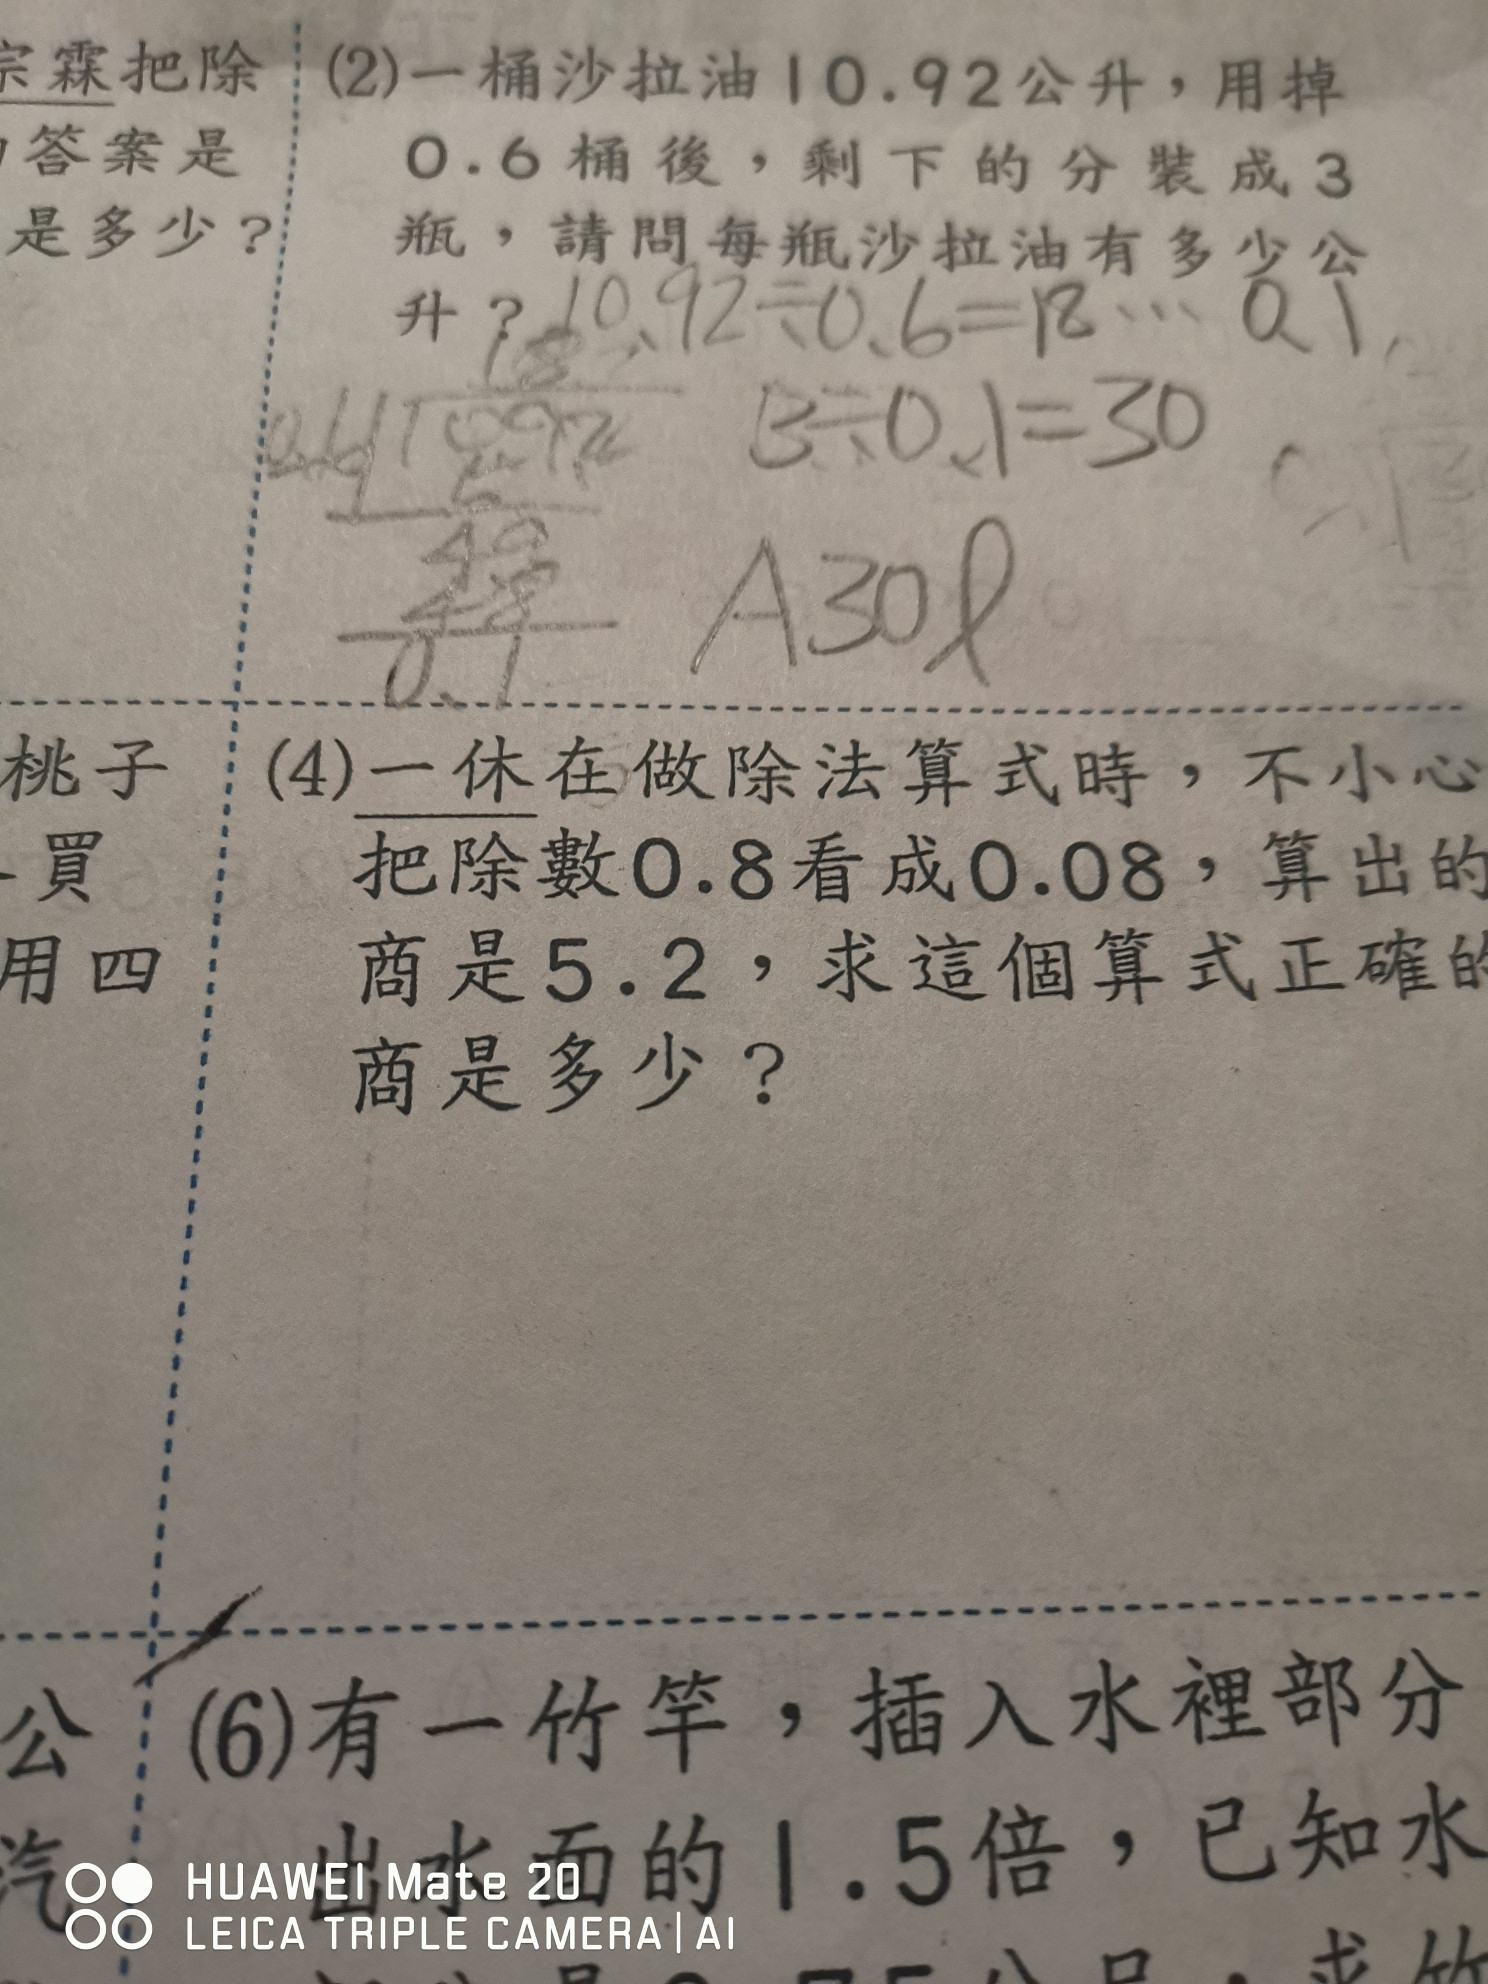 宗霖把除
答案是
是多少？
(2)一桶沙拉油10.92公升，用掉
0.6桶後，剩下的分裝成3
瓶，請問每瓶沙拉油有多少公
升？
10.92÷0.6=18…0.1
18
3÷0.1=30
48
0.1
A30ℓ
桃子
買
用四
(4)一休在做除法算式時，不小心
把除數0.8看成0.08，算出的
商是5.2，求這個算式正確的
商是多少？
公
汽
(6)有一竹竿，插入水裡部分
出水面的1.5倍，已知水
HUAWEI Mate 20
LEICA TRIPLE CAMERA | AI